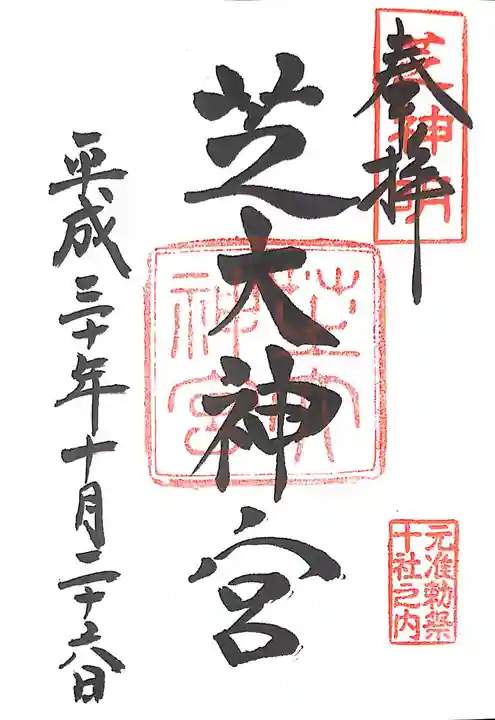 奉拝
芝神明
芝大神宮
芝大神宮
元准勅祭
十社之内
平成三十年十月二十六日